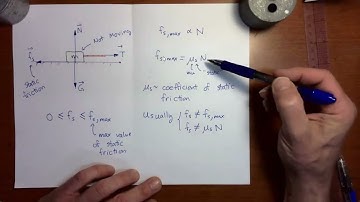 N
Not moving
f_s
m
T
static
friction
G
0 ≤ f_s ≤ f_s,max
max value
of static
friction
f_s,max ∝ N
f_s,max = μ_s N
μ_s ~ coefficient of static
friction
Usually { f_s ≠ f_s,max
f_s ≠ μ_s N